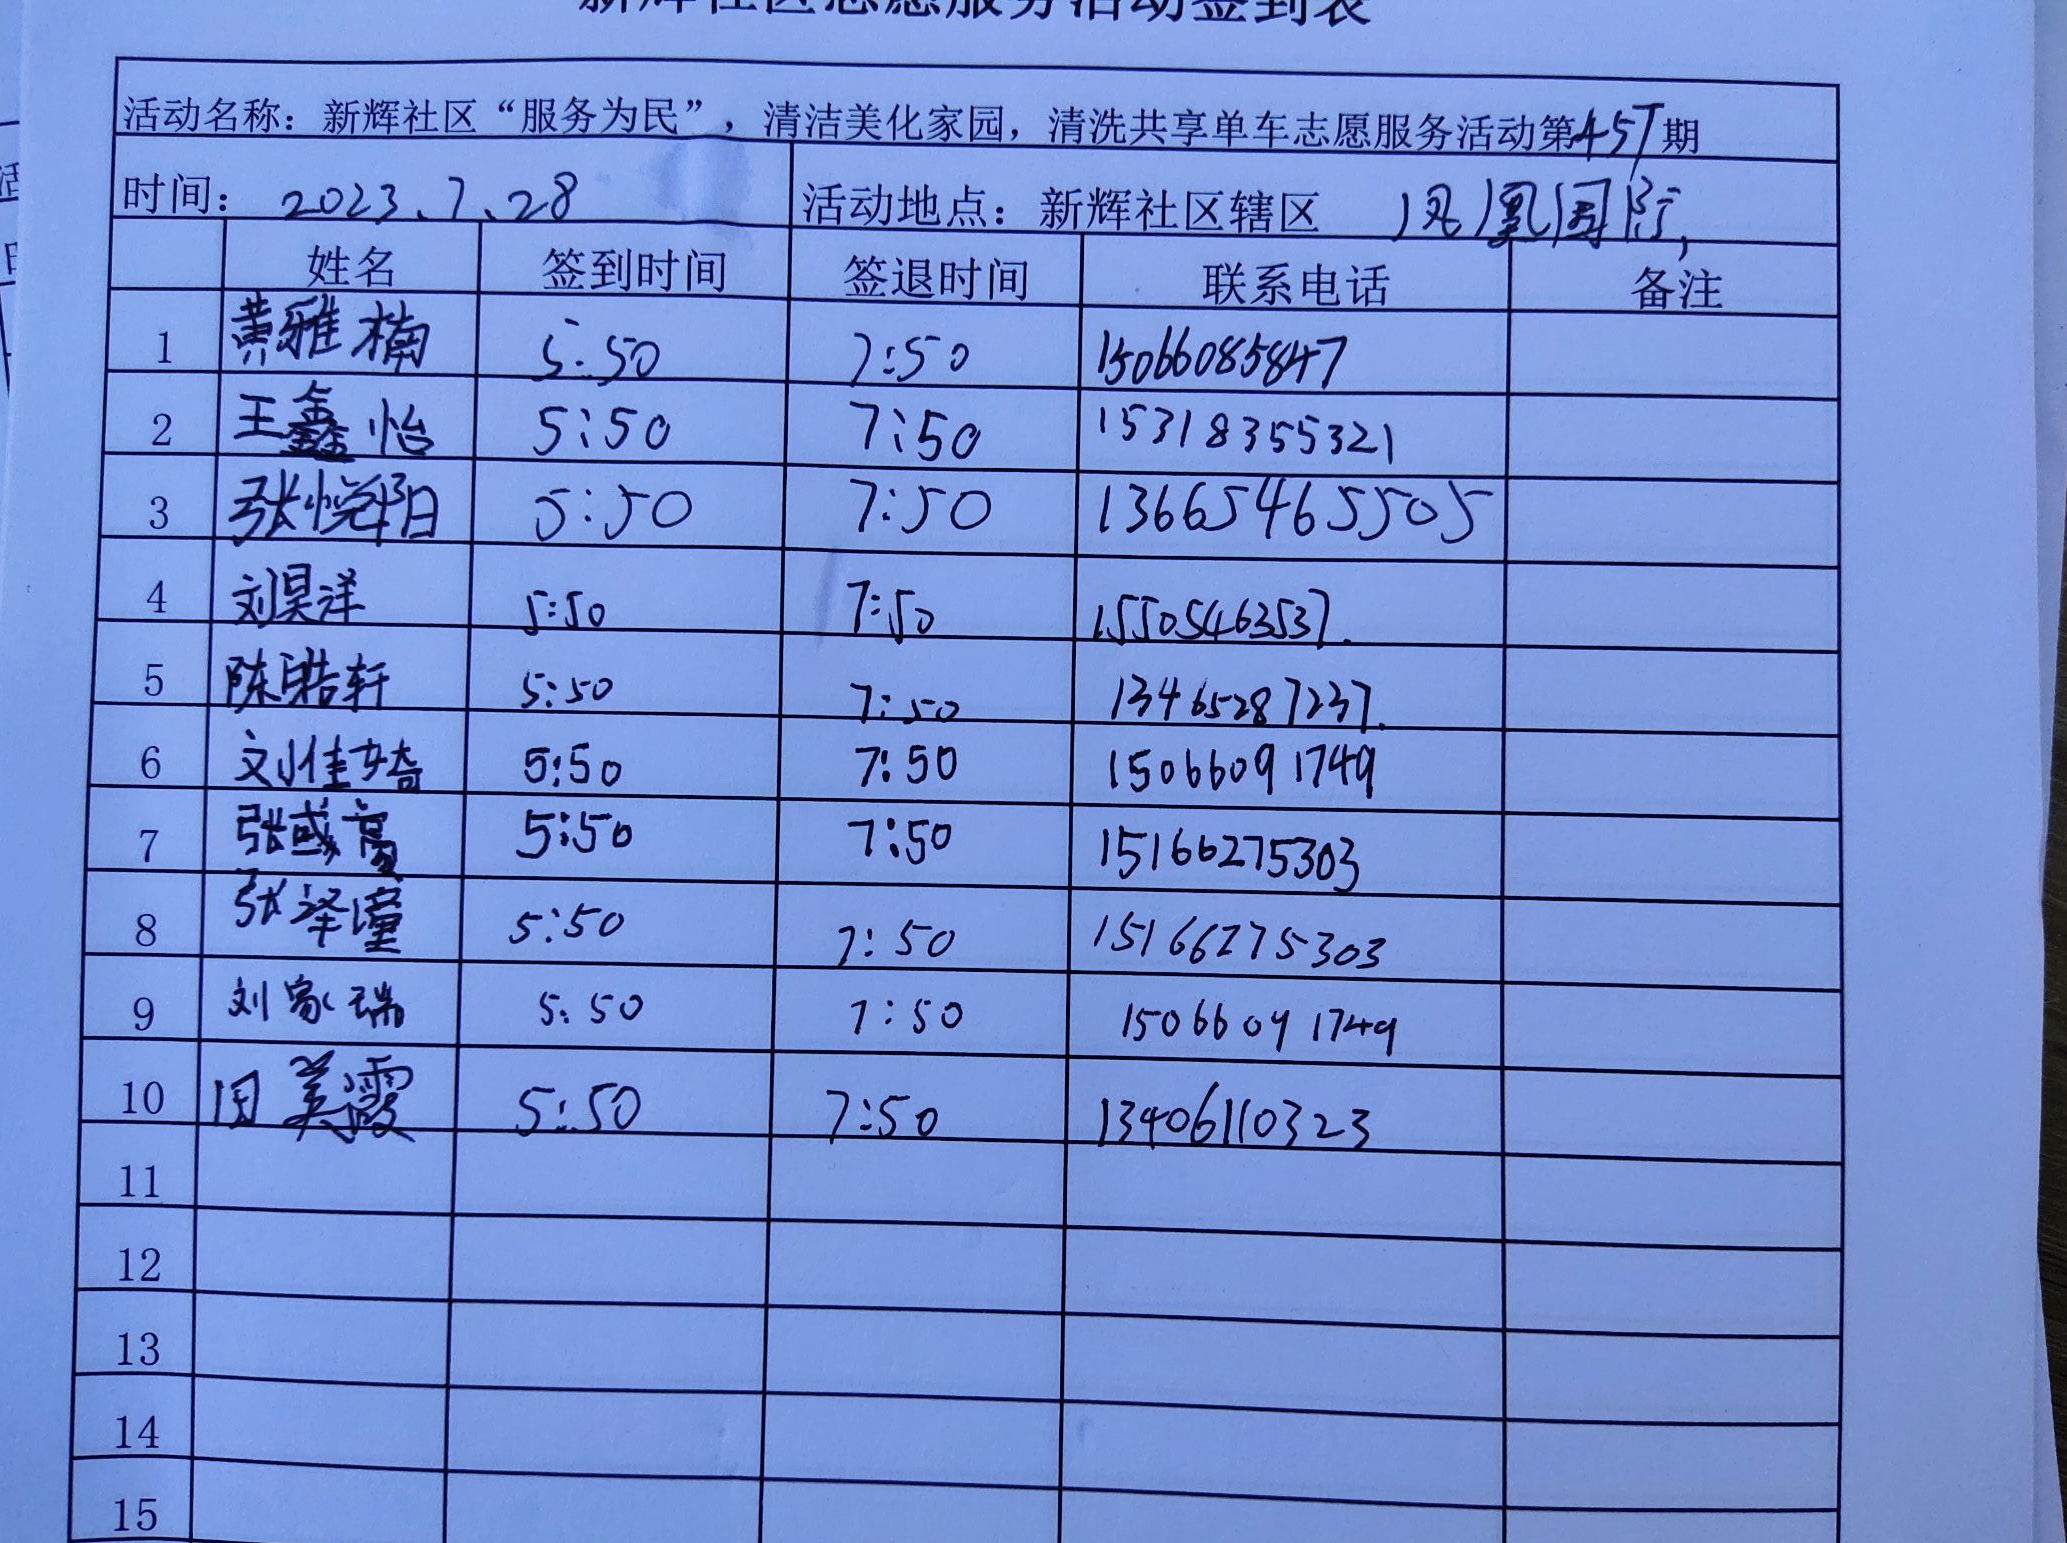 新辉社区志愿服务活动签到表
活动名称：新辉社区“服务为民”，清洁美化家园，清洗共享单车志愿服务活动第457期
时间： 2023.7.28 活动地点：新辉社区辖区 凤凰国际
姓名 签到时间 签退时间 联系电话 备注
1 黄雅楠 5:50 7:50 15066085847
2 王鑫怡 5:50 7:50 15318355321
3 张悦阳 5:50 7:50 13665465505
4 刘昊洋 5:50 7:50 15505463537.
5 陈皓轩 5:50 7:50 13465287237.
6 刘佳琦 5:50 7:50 15066091749
7 张盛 5:50 7:50 15166275303
8 张泽潼 5:50 7:50 15166275303
9 刘家瑞 5:50 7:50 15066091749
10 田美霞 5:50 7:50 13406110323
11
12
13
14
15